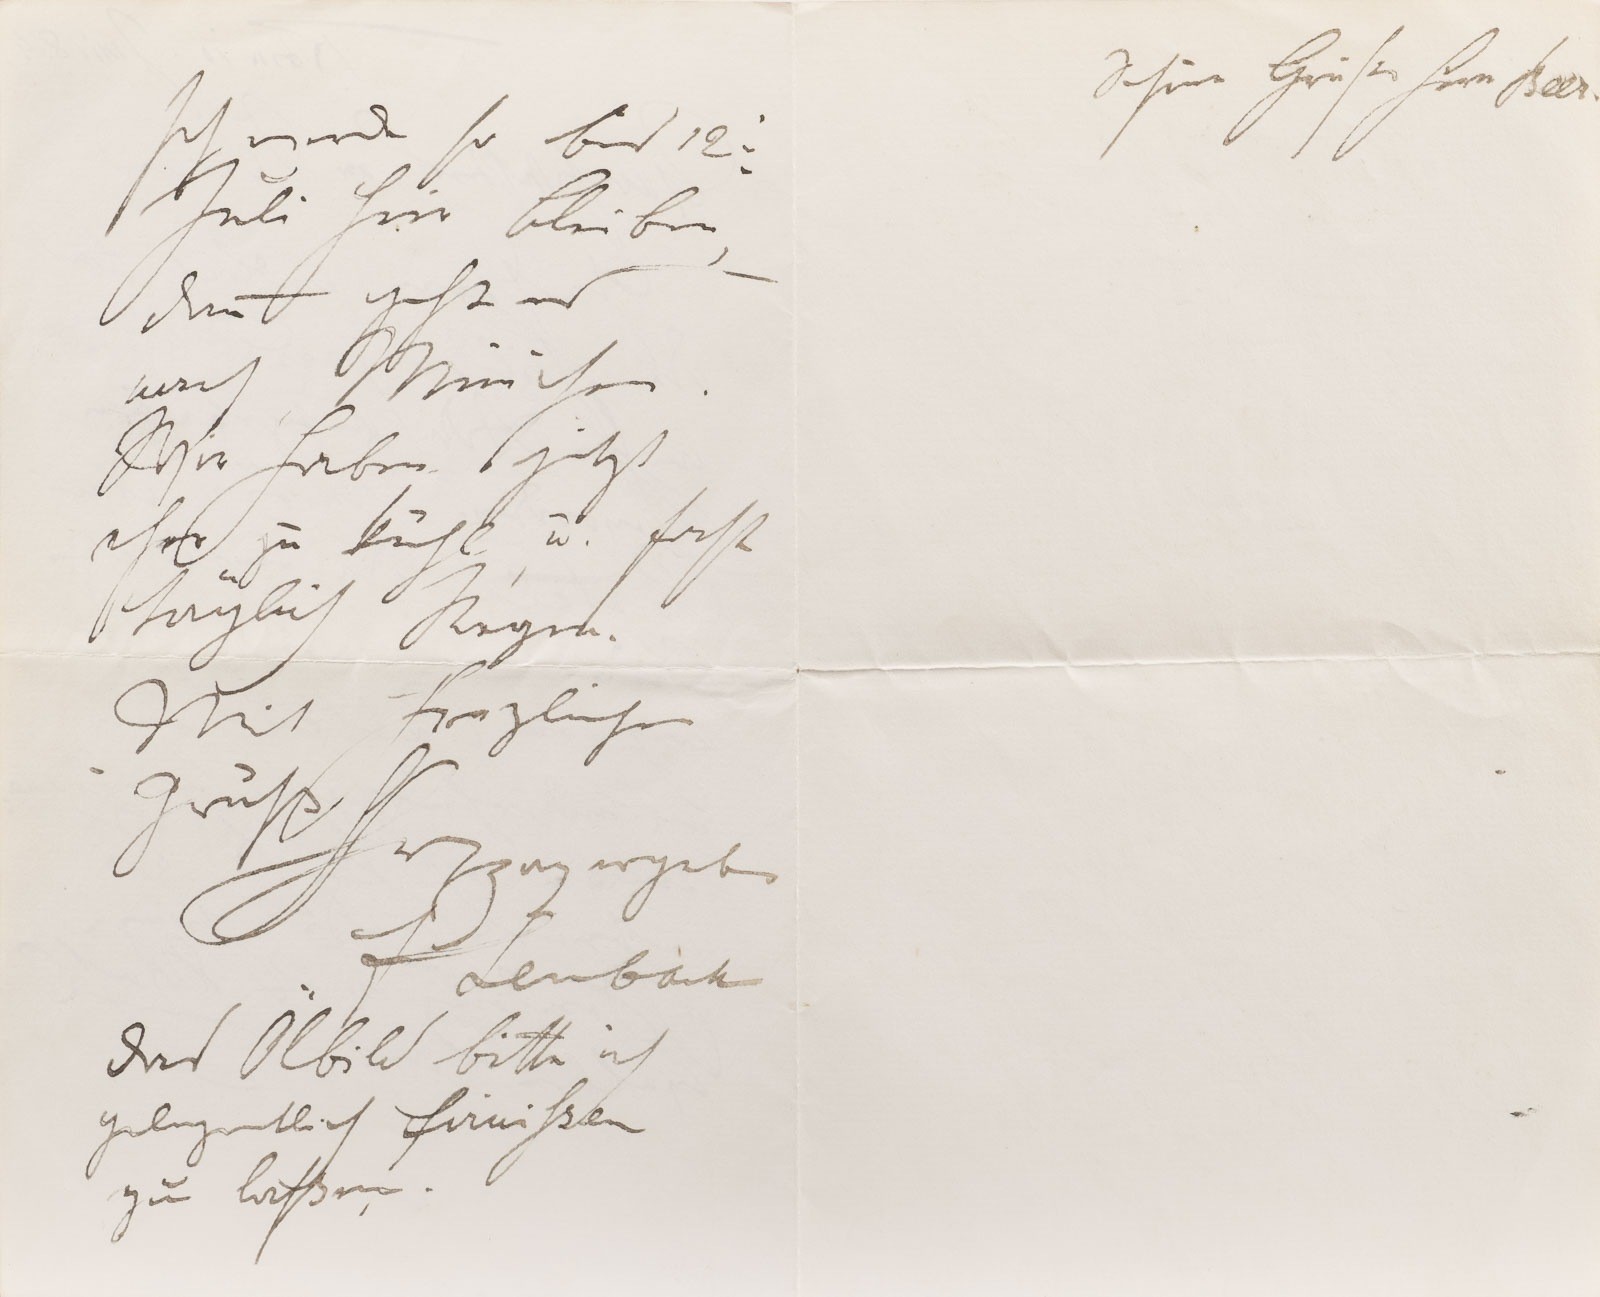 Ich werde so bis 12.
Juli hier bleiben,
dann geht es
nach München.
Wir haben jetzt
eher zu kühl u. fast
täglich Regen.
Mit herzlichen
Grüßen
ergeben
F Lenbach
das Ölbild bitte ich
gelegentlich firnißen
zu laßen.
Schöne Grüße Herrn Beer.